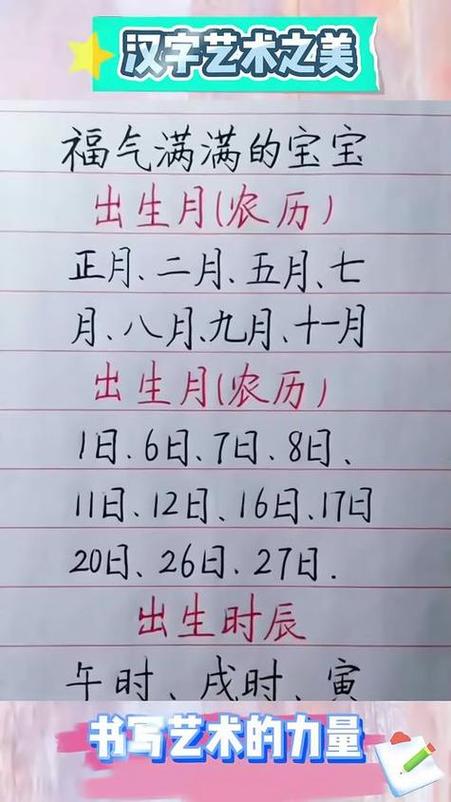 汉字艺术之美
福气满满的宝宝
出生月(农历)
正月、二月、五月、七
月、八月、九月、十一月
出生月(农历)
1日、6日、7日、8日、
11日、12日、16日、17日
20日、26日、27日.
出生时辰
午时、戌时、寅
书写艺术的力量